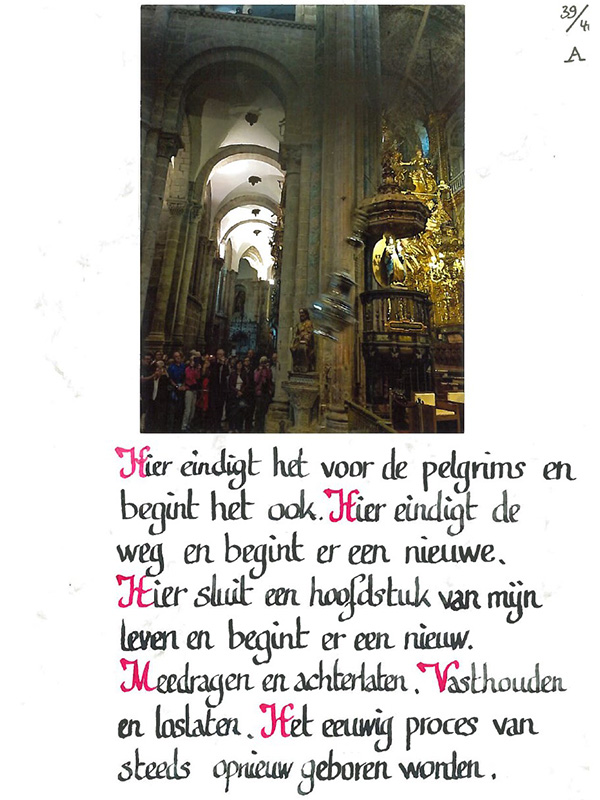 39/4
A
Hier eindigt het voor de pelgrims en
begint het ook. Hier eindigt de
weg en begint er een nieuwe.
Hier sluit een hoofdstuk van mijn
leven en begint er een nieuw.
Meedragen en achterlaten. Vasthouden
en loslaten. Het eeuwig proces van
steeds opnieuw geboren worden.